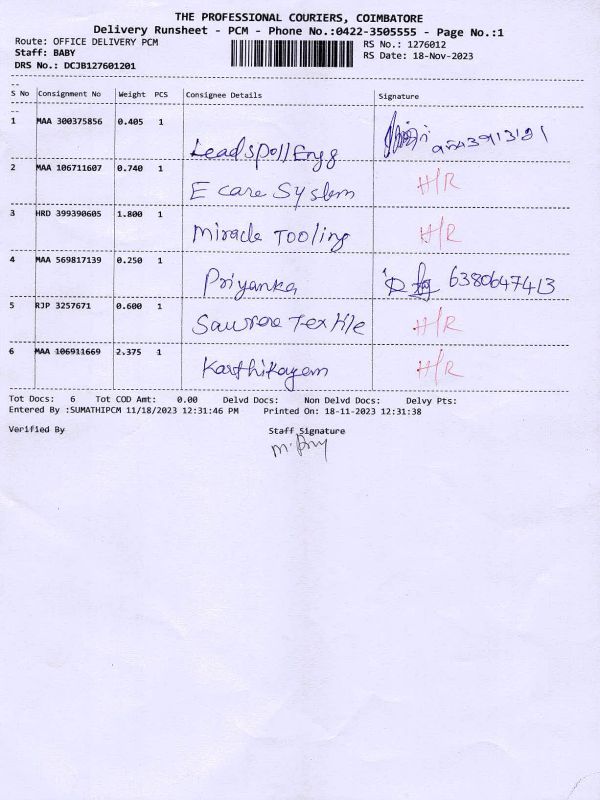 THE PROFESSIONAL COURIERS, COIMBATORE
Delivery Runsheet - PCM - Phone No.:0422-3505555 - Page No.:1
Route: OFFICE DELIVERY PCM RS No.: 1276012
Staff: BABY RS Date: 18-Nov-2023
DRS No.: DCJB127601201
S No Consignment No Weight PCS Consignee Details Signature
1 MAA 300375856 0.405 1
Leadspoll Engg
2 MAA 106711607 0.740 1 H/R
E care System
3 HRD 399390605 1.800 1 H/R
Miracle Tooling
4 MAA 569817139 0.250 1
Priyanka 6380647413
5 RJP 3257671 0.600 1 H/R
Textile
6 MAA 106911669 2.375 1 H/R
Karthikayem
Tot Docs: 6 Tot COD Amt: 0.00 Delvd Docs: Non Delvd Docs: Delvy Pts:
Entered By :SUMATHIPCM 11/18/2023 12:31:46 PM Printed On: 18-11-2023 12:31:38
Verified By Staff Signature